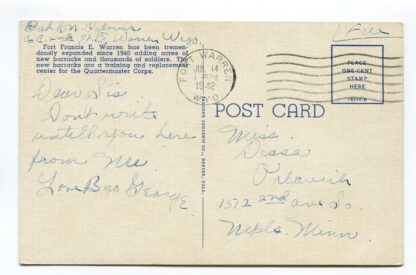 Fort Francis E. Warren has been tremen-
dously expanded since 1940 adding acres of
new barracks and thousands of soldiers. The
new barracks are a training and replacement
center for the Quartermaster Corps.
Dear Sis
Don't write
untell you here
from Me.
Love Bro. George
FORT WARREN
14
1942
WYO.
Free
PLACE
ONE CENT
STAMP
HERE
POST CARD
Miss.
1512 2nd ave So.
Mpls. Minn.